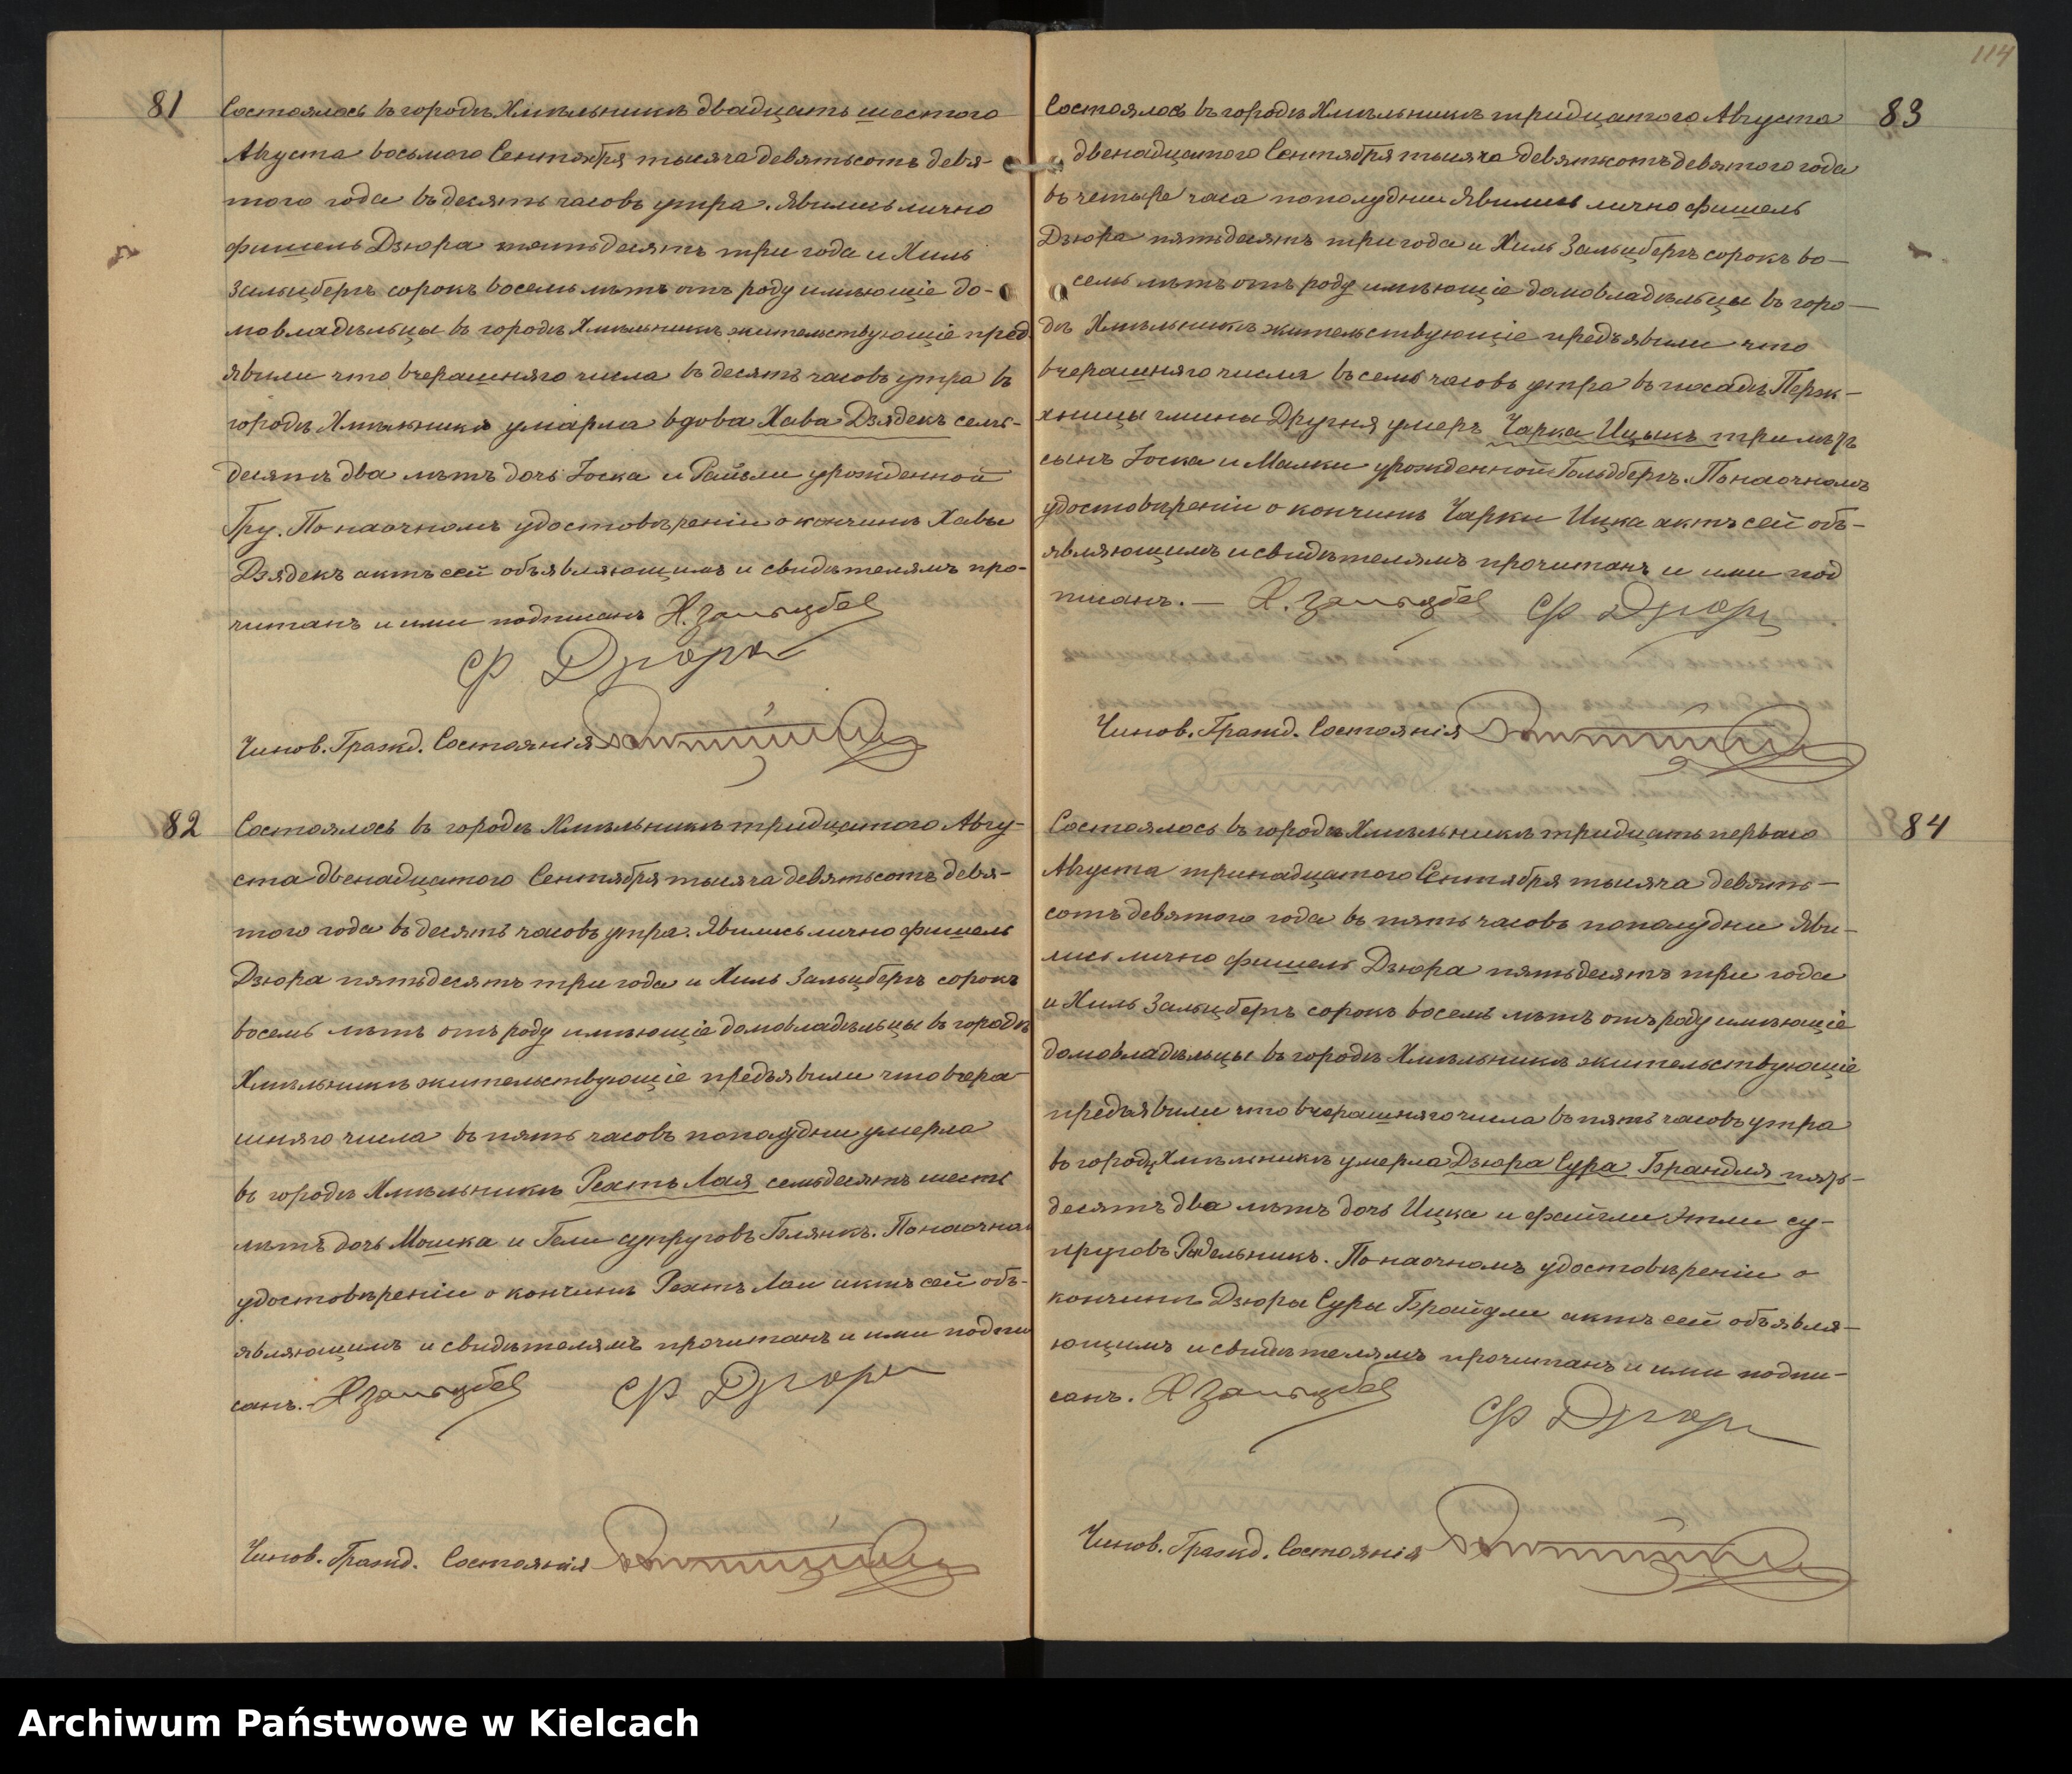 81
Состоялось въ городѣ Хмѣльникѣ двадцать шестого
Августа восьмого Сентября тысяча девятьсотъ девя-
того года въ десять часовъ утра. Явились лично
Фишель Дзюра пятьдесятъ три года и Хиль
Зальцбергъ сорокъ восемь лѣтъ отъ роду имѣющіе до-
мовладѣльцы въ городѣ Хмѣльникѣ жительствующіе пред
явили что вчерашняго числа въ десять часовъ утра въ
городѣ Хмѣльникѣ умарла вдова Хава Дзядекъ семь-
десятъ два лѣтъ дочь Іоска и Райзли урожденной
Гру. По наочномъ удостовѣреніи о кончинѣ Хавы
Дзядекъ актъ сей объявляющимъ и свидѣтелямъ про-
читанъ и ими подписанъ Х. Зальцбе
Ф Дзюра
Чинов. Гражд. Состоянія
82
Состоялось въ городѣ Хмѣльникѣ тридцатого Авгу-
ста двенадцатого Сентября тысяча девятьсотъ девя-
того года въ десять часовъ утра. Явились лично Фишель
Дзюра пятьдесятъ три года и Хиль Зальцбергъ сорокъ
восемь лѣтъ отъ роду имѣющіе домовладѣльцы въ городѣ
Хмѣльникѣ жительствующіе предъявили что вчера-
шняго числа въ пять часовъ пополудни умерла
въ городѣ Хмѣльникѣ Рехтъ Лая семьдесятъ шесть
лѣтъ дочь Мошка и Гели супруговъ Блянкъ. По наочно
удостовѣреніи о кончинѣ Рехтъ Лаи актъ сей объ-
являющимъ и свидѣтелямъ прочитанъ и ими подпи
санъ. Х Зальцбе Ф Дзюра
Чинов. Гражд. Состоянія
114
83
Состоялось въ городѣ Хмѣльникѣ тридцатого Августа
двенадцатого Сентября тысяча девятьсотъ девятого года
въ четыре часа пополудни Явились лично Фишель
Дзюра пятьдесятъ три года и Хиль Зальцбергъ сорокъ во-
семь лѣтъ отъ роду имѣющіе домовладѣльцы въ горо-
дѣ Хмѣльникѣ жительствующіе предъявили что
вчерашняго числа въ семь часовъ утра въ посадѣ Перж-
хницы гмины Другня умеръ Чарка Ицыкъ три лѣтъ
сынъ Іоска и Малки урожденной Гольдбергъ. По наочномъ
удостовѣреніи о кончинѣ Чарки Ицка актъ сей объ-
являющимъ и свидѣтелямъ прочитанъ и ими под
писанъ. — Х. Зальцбе Ф Дзюра
Чинов. Гражд. Состоянія
84
Состоялось въ городѣ Хмѣльникѣ тридцать перваго
Августа тринадцатого Сентября тысяча девять-
сотъ девятого года въ пять часовъ пополудни Яви-
лись лично Фишель Дзюра пятьдесятъ три года
и Хиль Зальцбергъ сорокъ восемь лѣтъ отъ роду имѣющіе
домовладѣльцы въ городѣ Хмѣльникѣ жительствующіе
предъявили что вчерашняго числа въ пять часовъ утра
въ городѣ Хмѣльникѣ умерла Дзюра Сура Брандля пять-
десятъ два лѣтъ дочь Ицка и Файгли Этли су-
пруговъ Радельникъ. По наочномъ удостовѣреніи о
кончинѣ Дзюры Суры Брайдли актъ сей объявля-
ющимъ и свидѣтелямъ прочитанъ и ими подпи-
санъ. Х Зальцбе
Ф Дзюра
Чинов. Гражд. Состоянія
Archiwum Państwowe w Kielcach